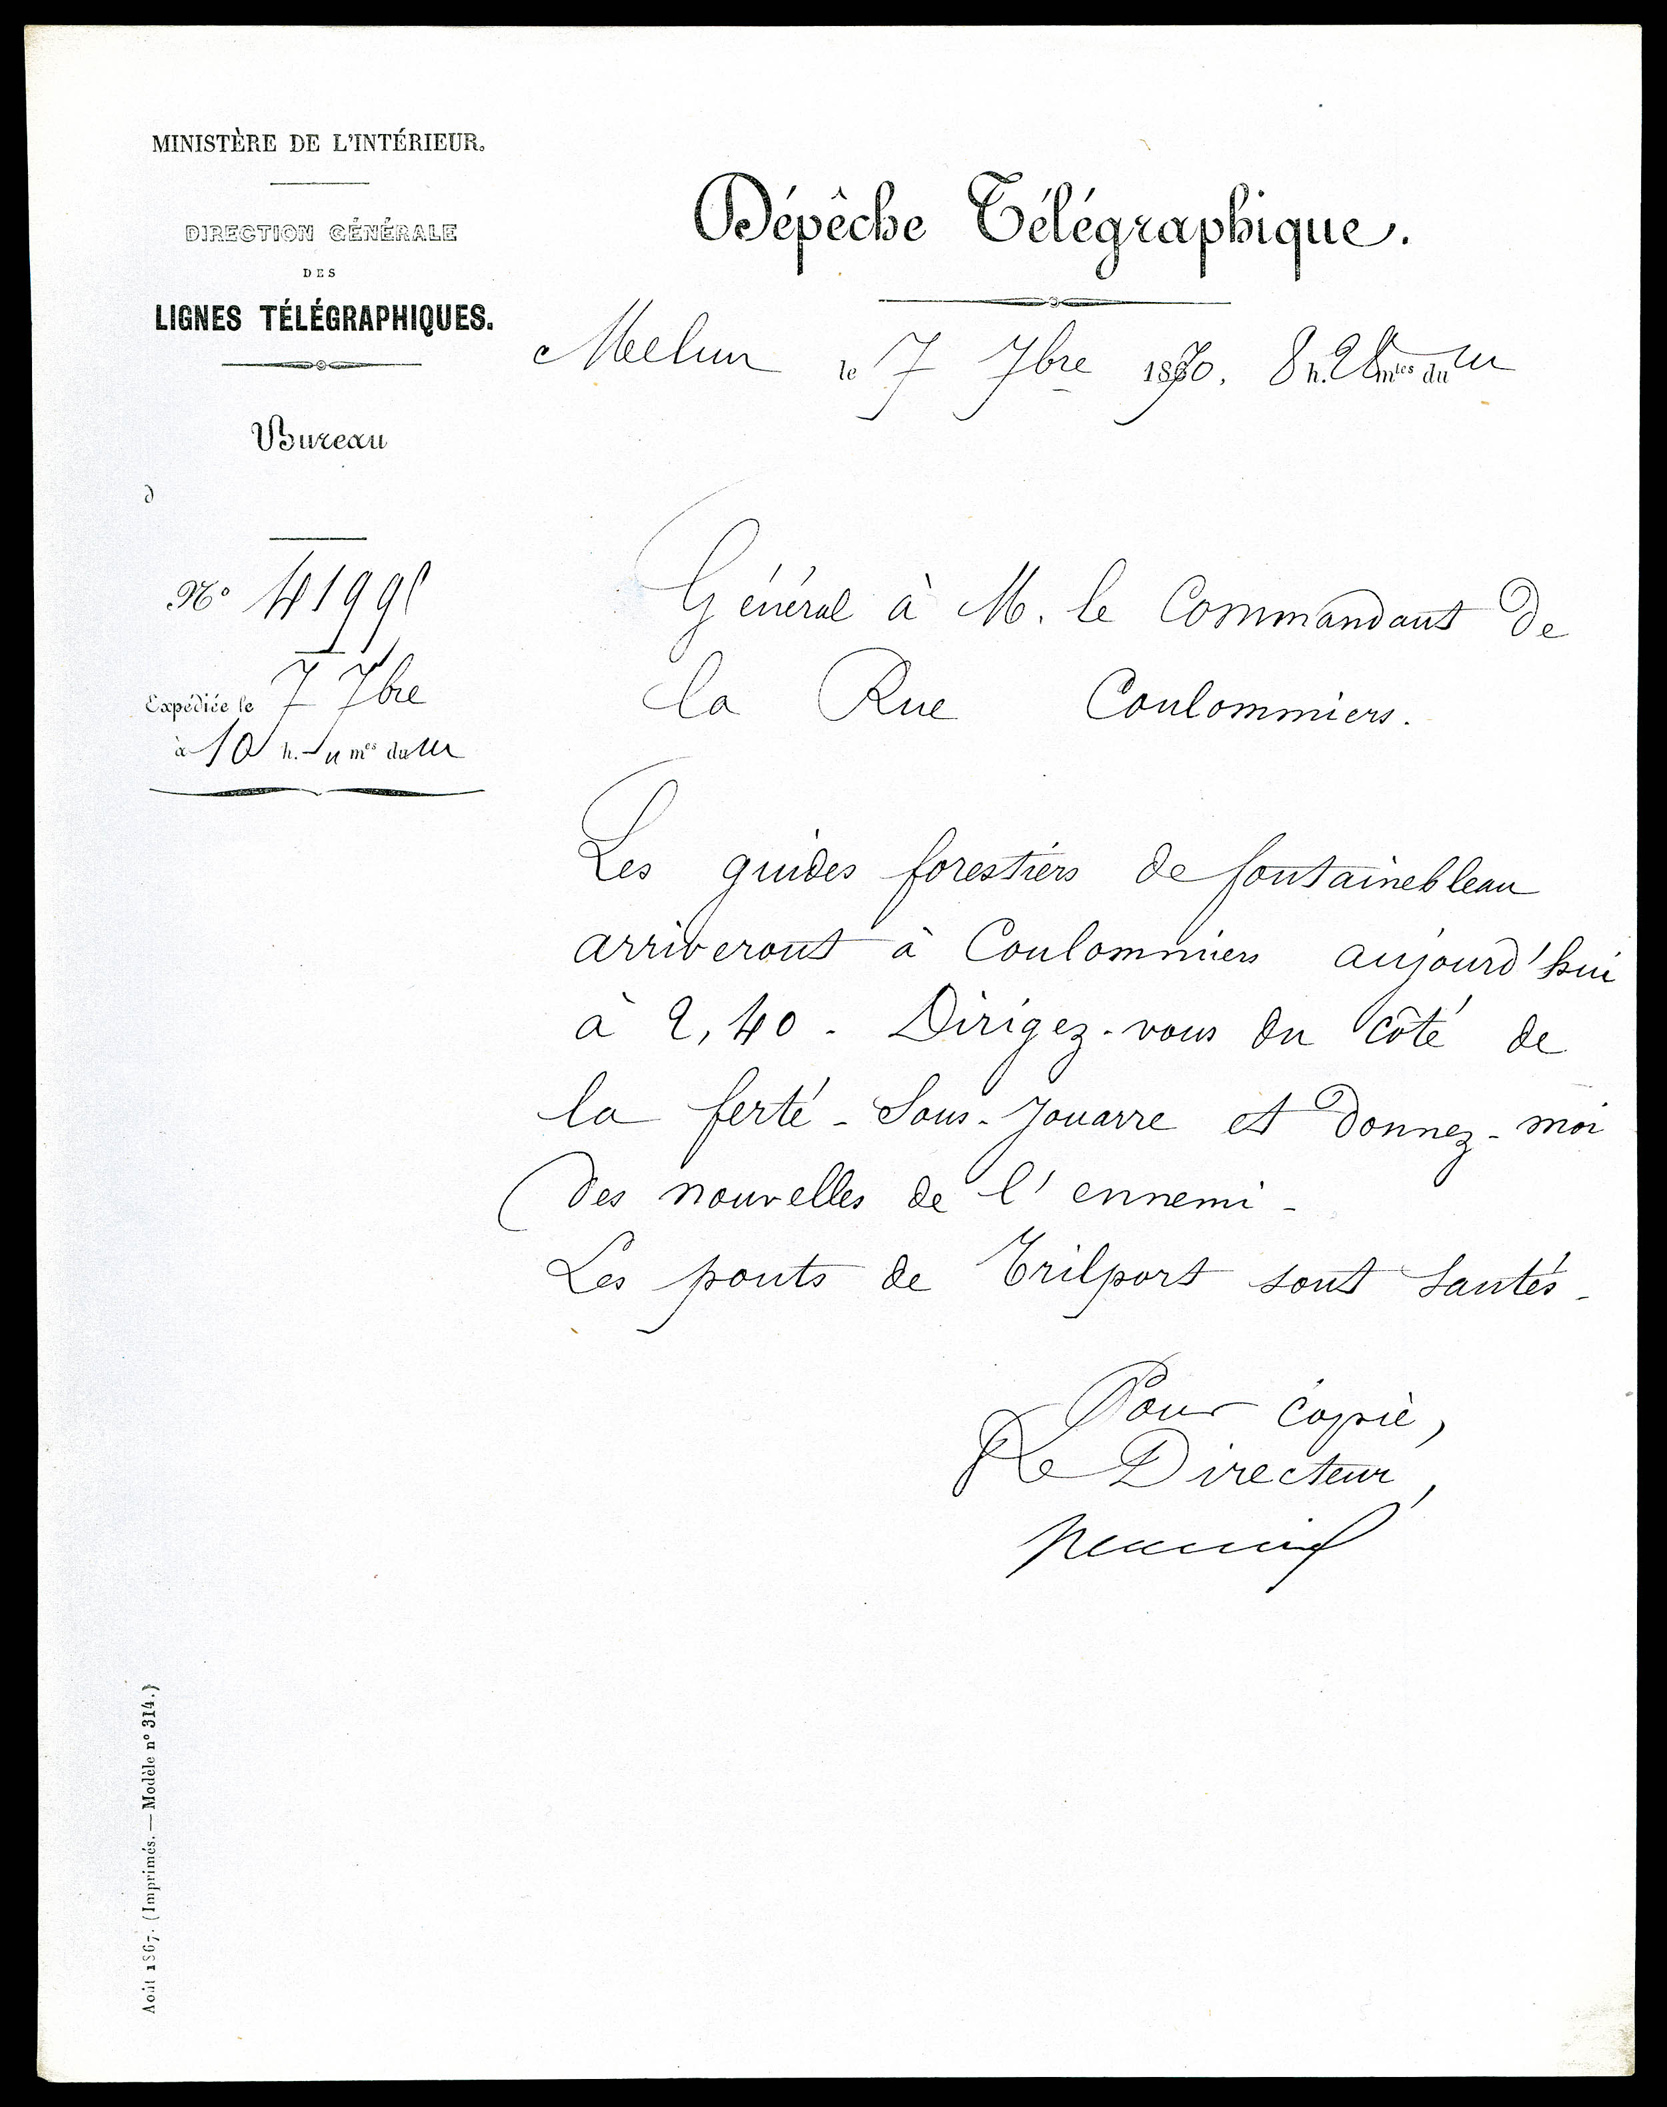 MINISTÈRE DE L'INTÉRIEUR.
DIRECTION GÉNÉRALE
DES
LIGNES TÉLÉGRAPHIQUES.
Bureau
d
N° 4199
Expédiée le 7 7bre
à 10 h. " mes du m
Dépêche Télégraphique.
Melun le 7 7bre 1870. 8 h. 28 mtes du m
Général à M. le Commandant de
la Rue Coulommiers.
Les guides forestiers de fontainebleau
arriveront à Coulommiers aujourd'hui
à 2,40 - Dirigez-vous du côté de
la ferté-Sous-Jouarre et donnez-moi
des nouvelles de l'ennemi -
Les ponts de Trilport sont sautés -
Pour copie,
Le Directeur,
Août 1867. (Imprimés. — Modèle n° 314.)